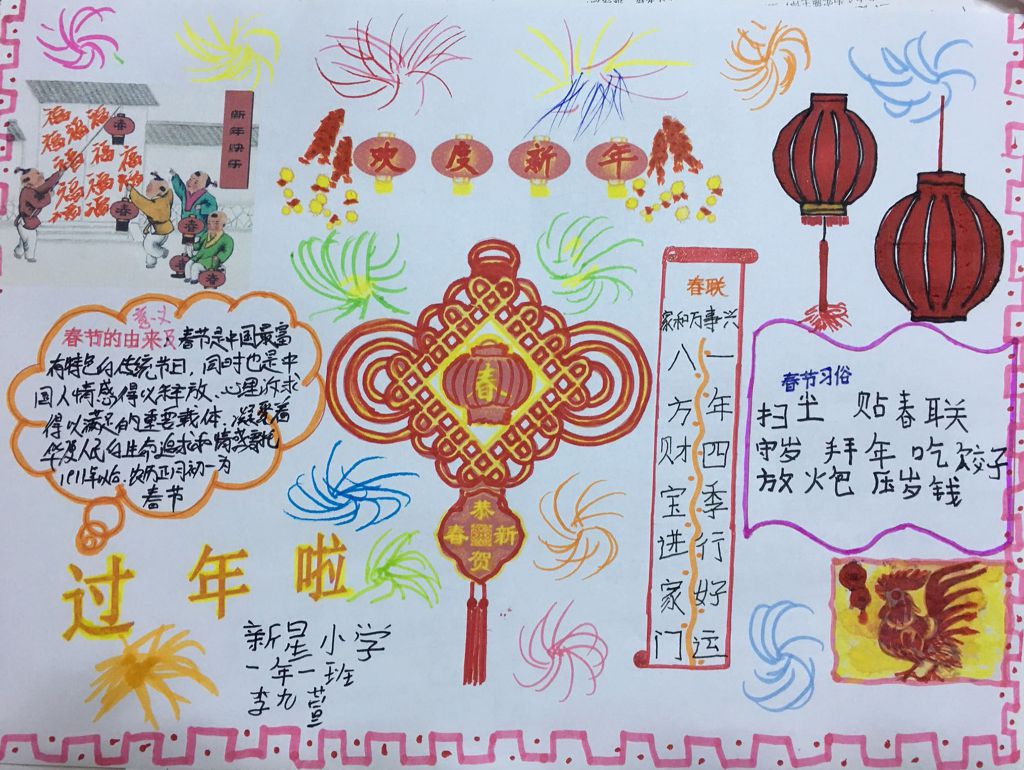 福
福 福 福
福 福
福 福
福 福
春
新年快乐
春
春
欢度新年
春联
家和万事兴
一年四季行好运
八方财宝进家门
春节的由来及意义
春节是中国最富
有特色的传统节日，同时也是中
国人情感得以释放、心理诉求
得以满足的重要载体，凝聚着
华夏人民的生命追求和情感寄托
1911年以后，农历正月初一为
春节
春
恭
春 新
贺
春节习俗
扫尘 贴春联
守岁 拜年 吃饺子
放火炮 压岁钱
过年啦
新星小学
一年一班
李九萱